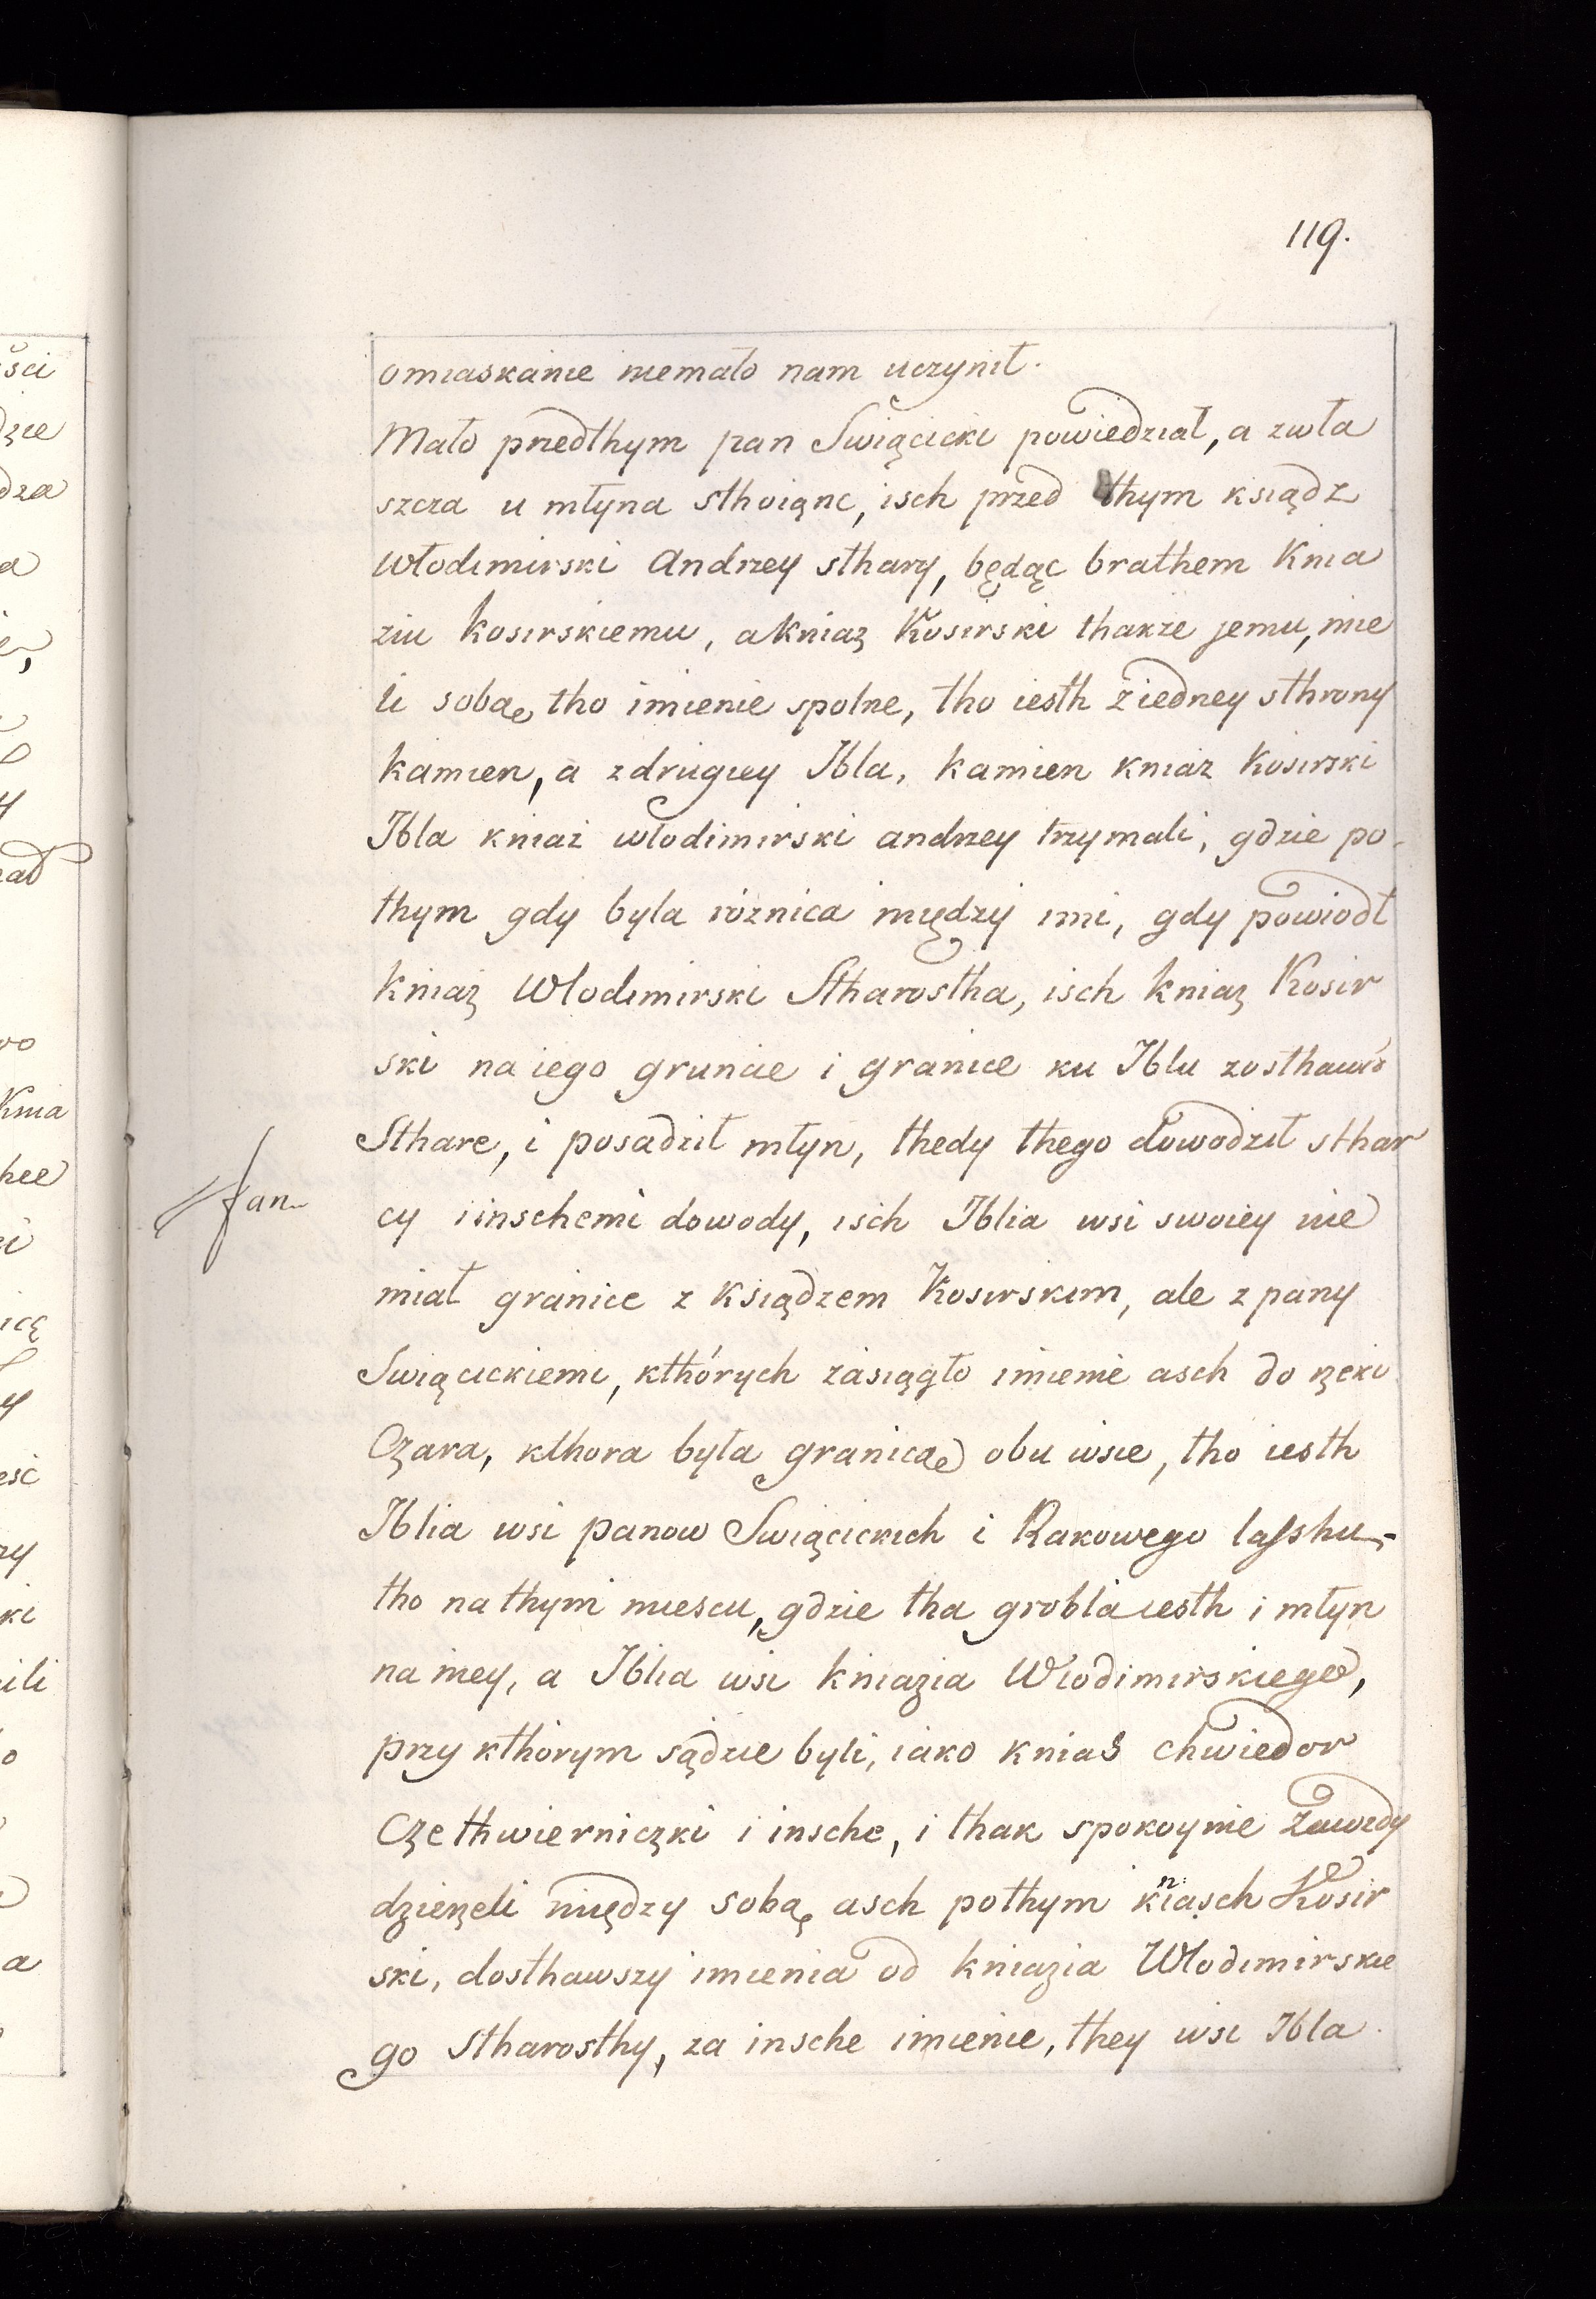 119.
omiaskanie niemało nam uczynił.
Mało przedthym pan Swiącicki powiedział, a zwła
szcza u młyna sthoiąnc, isch przed thym ksiądz
Włodimirski Andrzey sthary, będąc brathem Knia
ziu Kosirskiemu, a Kniaz Kosirski thakże jemu, mie
li sobąe tho imienie spolne, tho iesth z iedney sthrony
Kamien, a zdrugiey Jbla, Kamien kniaz Kosirski
Jbla kniaz włodimirski andrzey trzymali, gdzie po-
thym gdy byla różnica między imi, gdy powiodł
Kniaz Wlodimirski Stharostha, isch kniaz Kosir
ski na iego gruncie i granice ku Jblu zosthawił
Sthare, i posadził młyn, thedy thego dowodził sthar
cy i inschemi dowody, isch Jblia wsi swoiey nie
miał granice z Ksiądzem Kosirskim, ale z pany
Swiącickiemi, kthórych zasiągło imienie asch do rzeki
Czara, kthora była granicąe obu wsie, tho iesth
Jblia wsi panow Swiącickich i Rakowego lasshu-
tho na thym miescu, gdzie tha grobla iesth i młyn
na niey, a Jblia wsi kniazia Wlodimirskiego,
przy kthórym sądzie byli, iako knias chwiedor
Czethwierniczki i insche, i thak spokoynie zawzdy
dzierzeli między sobą, asch pothym kniasch Kosir
ski, dosthawszy imienia od kniazia Wlodimirskie
go Stharosthy, za insche imienie, they wsi Jbla